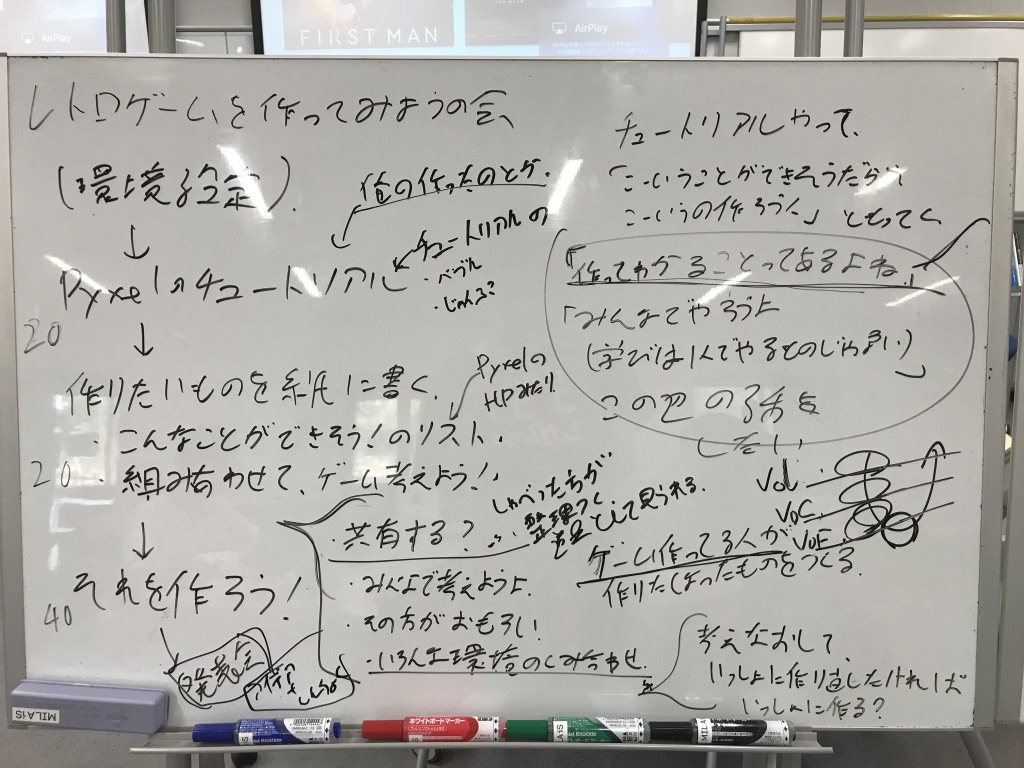 AirPlay
FIRST MAN
AirPlay
レトロゲームを作ってみようの会
(環境設定)
↓
俺の作ったのとか.
Pyxelのチュートリアル
チュートリアルの
・バブル
20
↓
作りたいものを紙に書く.
PyxelのHPみたり
・こんなことができそう!のリスト.
20
・組み合わせて、ゲーム考えよう!
↓
それを作ろう!
40
発表会
共有する?
しゃべった方が
整理つく
として見られる.
・みんなで考えようよ.
・その方がおもろい.
・いろんな環境のくみ合わせ.
チュートリアルやって、
「こーいうことができそうだから
こーいうの作ろう!」ともってく
「作ってわかることってあるよね.」
「みんなでやろうよ
(学びは1人でやるものじゃない)」
この辺の話も
したい
VoL
VoC
VoE
ゲーム作ってる人が
作りたくなったものをつくる.
考えなおして、
いっしょに作り直したければ
いっしょに作る?
MILAiS
ホワイトボードマーカー
MILAiS